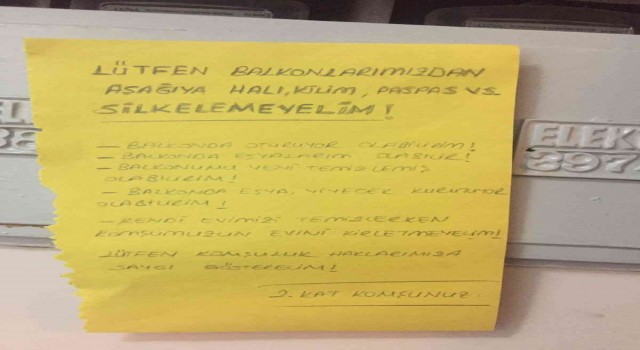 LÜTFEN BALKONLARIMIZDAN
AŞAĞIYA HALI, KİLİM, PASPAS VS.
SİLKELEMEYELİM!
— BALKONDA OTURUYOR OLABİLİRİM!
— BALKONDA EŞYALARIM OLABİLİR!
— BALKONUMU YENİ TEMİZLEMİŞ
OLABİLİRİM!
— BALKONDA EŞYA, YİYECEK KURUTUYOR
OLABİLİRİM!
— KENDİ EVİMİZİ TEMİZLERKEN
KOMŞUMUZUN EVİNİ KİRLETMEYELİM!
LÜTFEN KOMŞULUK HAKLARIMIZA
SAYGI GÖSTERELİM!
2. KAT KOMŞUNUZ
ELEK
397